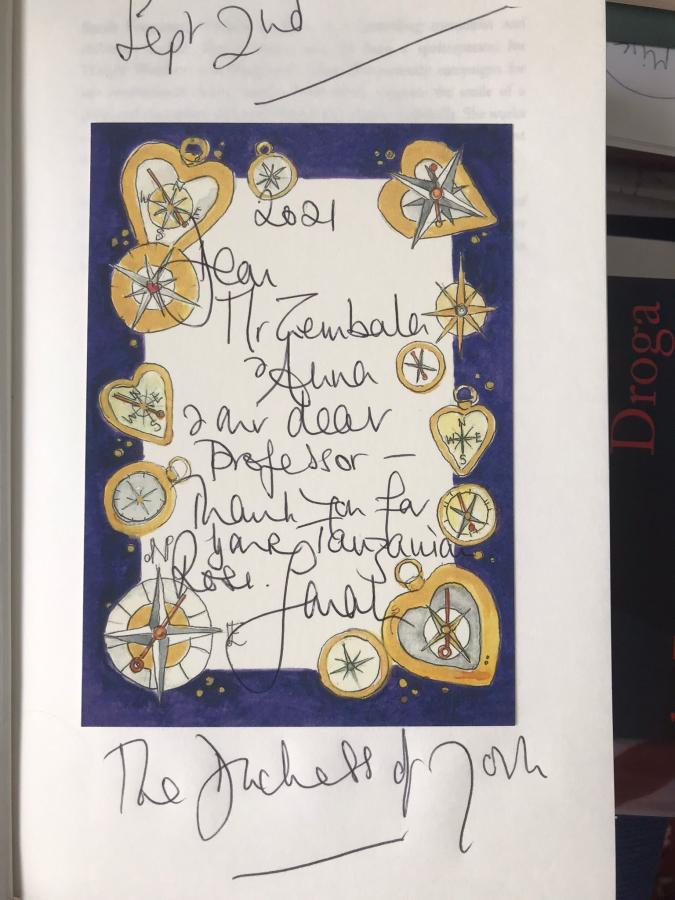 Sept 2nd
2021
Dear
Mr Zembala
& Anna
& our dear
Professor –
Thank you for
your Tanzanian
Rose. Sarah
The Duchess of York
Droga
N
W
E
S
N
W
E
S
N
E